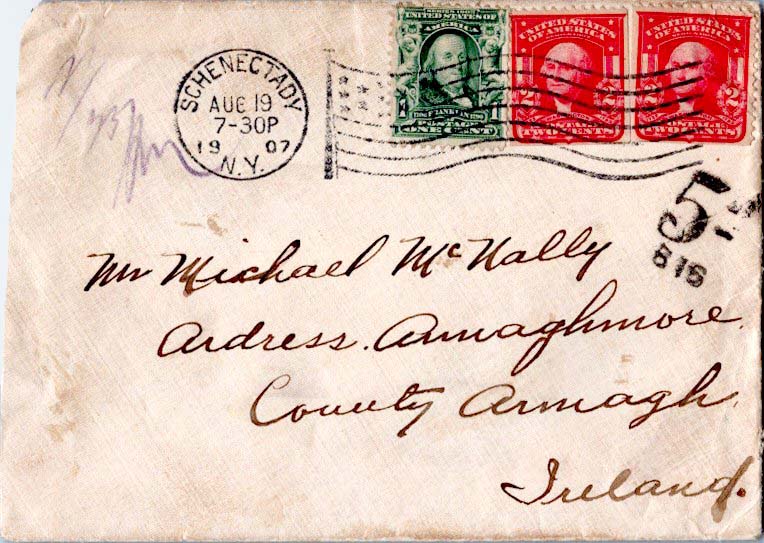 SCHENECTADY
AUG 19
7-30P
19 07
N.Y.
SERIES 1902
UNITED STATES OF
AMERICA
FRANKLIN
POSTAGE
ONE CENT
UNITED STATES
OF AMERICA
2 2
POSTAGE
TWO CENTS
UNITED STATES
OF AMERICA
2 2
POSTAGE
TWO CENTS
5
616
Mr Michael McNally
Ardress. Annaghmore.
County Armagh.
Ireland.